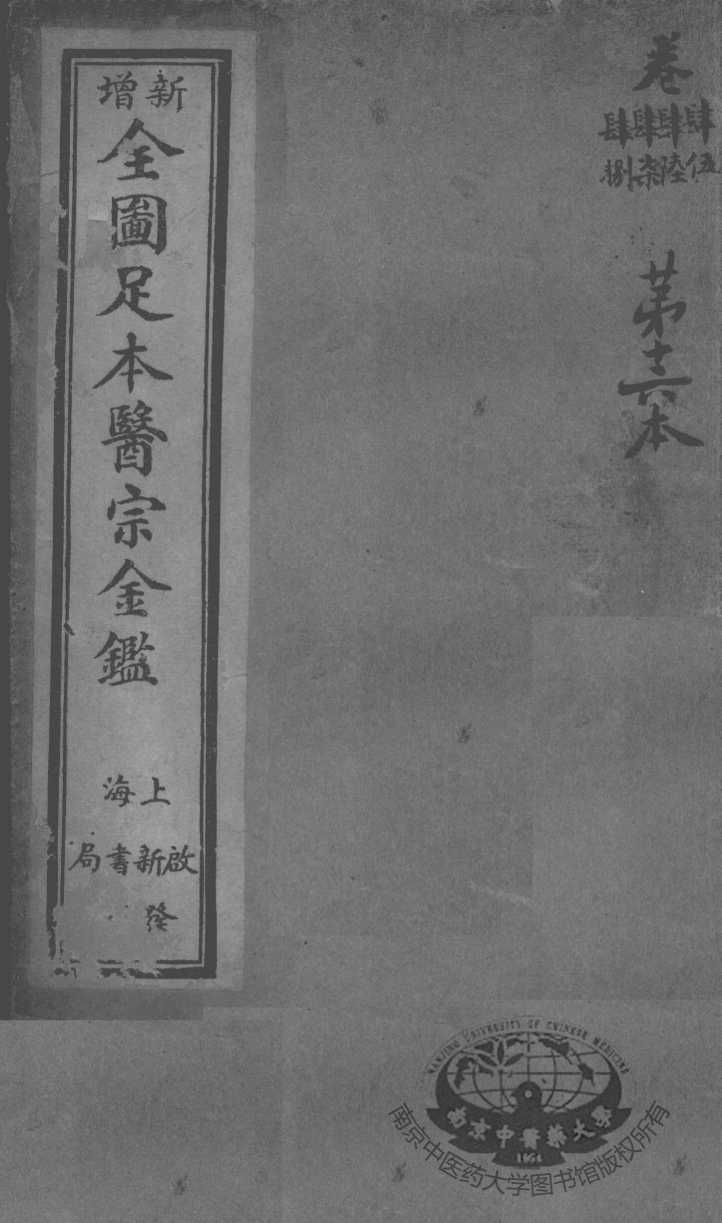 卷
肆伍
肆陸
肆柒
肆捌
第十六本
新增
全圖足本醫宗金鑑
上海
啟新書局
發
NANJING UNIVERSITY OF CHINESE MEDICINE
南京中醫藥大學
1954
南京中医药大学图书馆版权所有